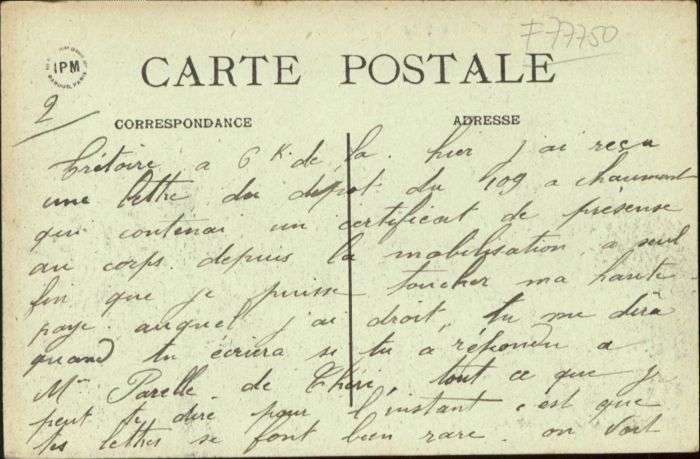 F 77750
IPM
CARTE POSTALE
2
CORRESPONDANCE
ADRESSE
Trétoire, a 6 K. de la. hier j'ai reçu
une lettre du dépot du 109 a chaumont
qui contenai un certificat de présense
au corps depuis la mobilisation a seul
fin que je puisse toucher ma haute
paye auquel j'ai droit, tu me dira
quand tu écrira si tu a répondu a
Mme Parelle de, tout ce que je
peut te dire pour l'instant c'est que
tes lettres se font bien rare. on voit